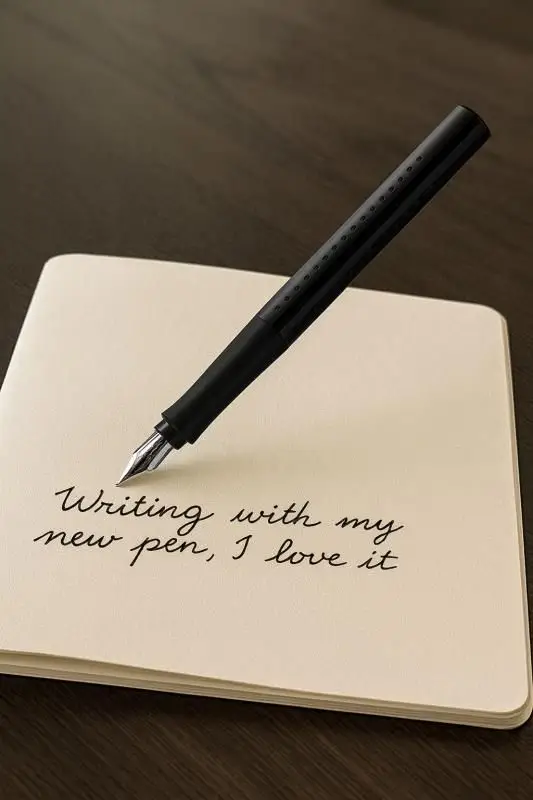 Writing with my
new pen, I love it